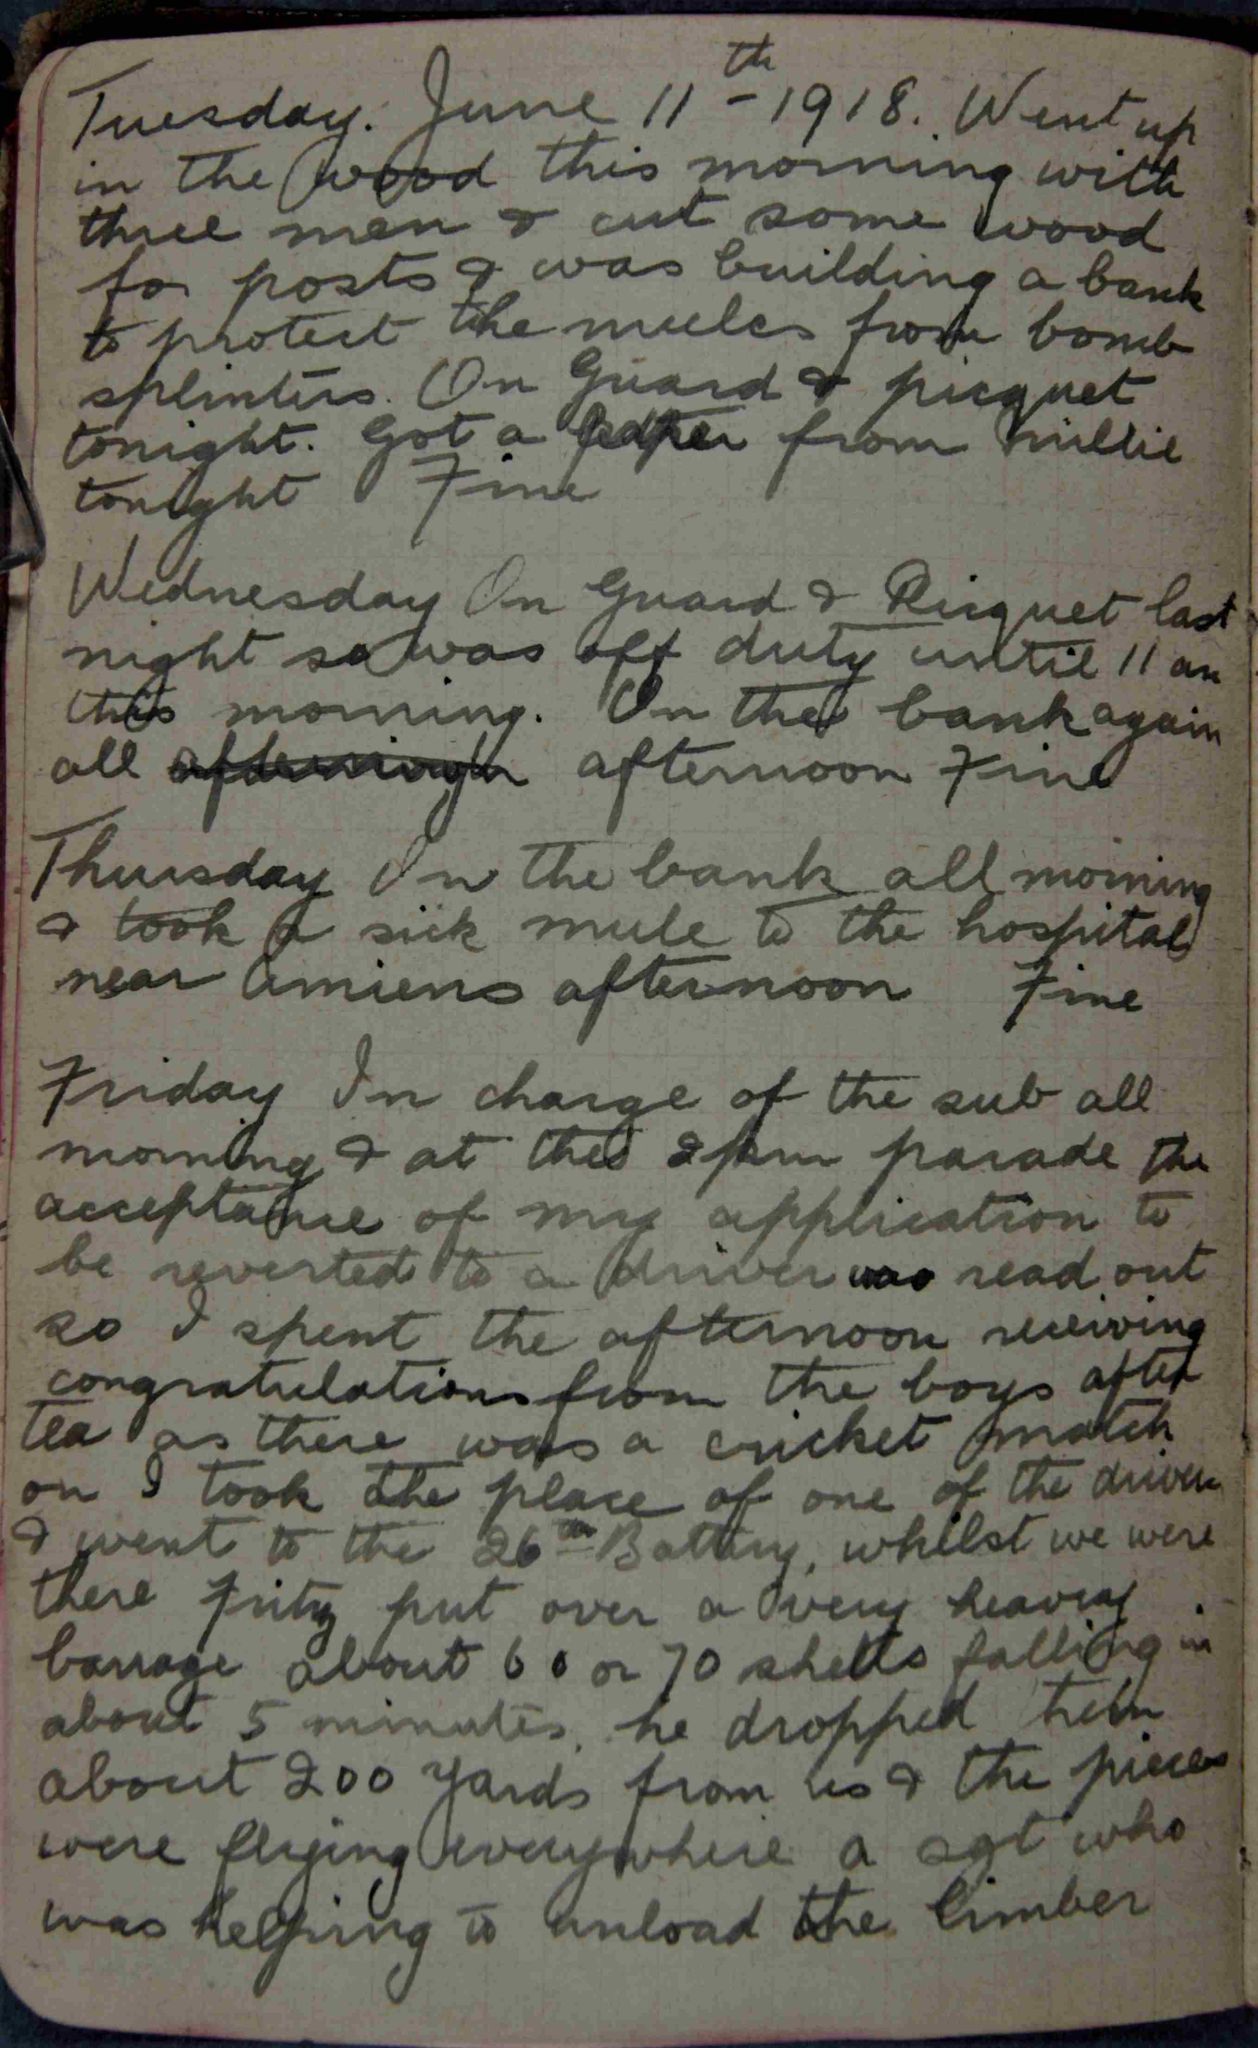 Tuesday. June 11th - 1918. Went up
in the wood this morning with
three men & cut some wood
for posts & was building a bank
to protect the mules from bomb
splinters. On Guard & picquet
tonight. Got a paper from Millie
tonight Fine
Wednesday On Guard & Picquet last
night so was off duty until 11 am
this morning. On the bank again
all afternoon Fine
Thursday On the bank all morning
& took a sick mule to the hospital
near Amiens afternoon Fine
Friday In charge of the sub all
morning & at the 2 pm parade the
acceptance of my application to
be reverted to a driver was read out
so I spent the afternoon receiving
congratulations from the boys after
tea as there was a cricket match
on I took the place of one of the drivers
& went to the 26th Battery, whilst we were
there Fritz put over a very heavy
barrage about 60 or 70 shells falling in
about 5 minutes, he dropped them
about 200 yards from us & the pieces
were flying everywhere a sgt who
was helping to unload the limber